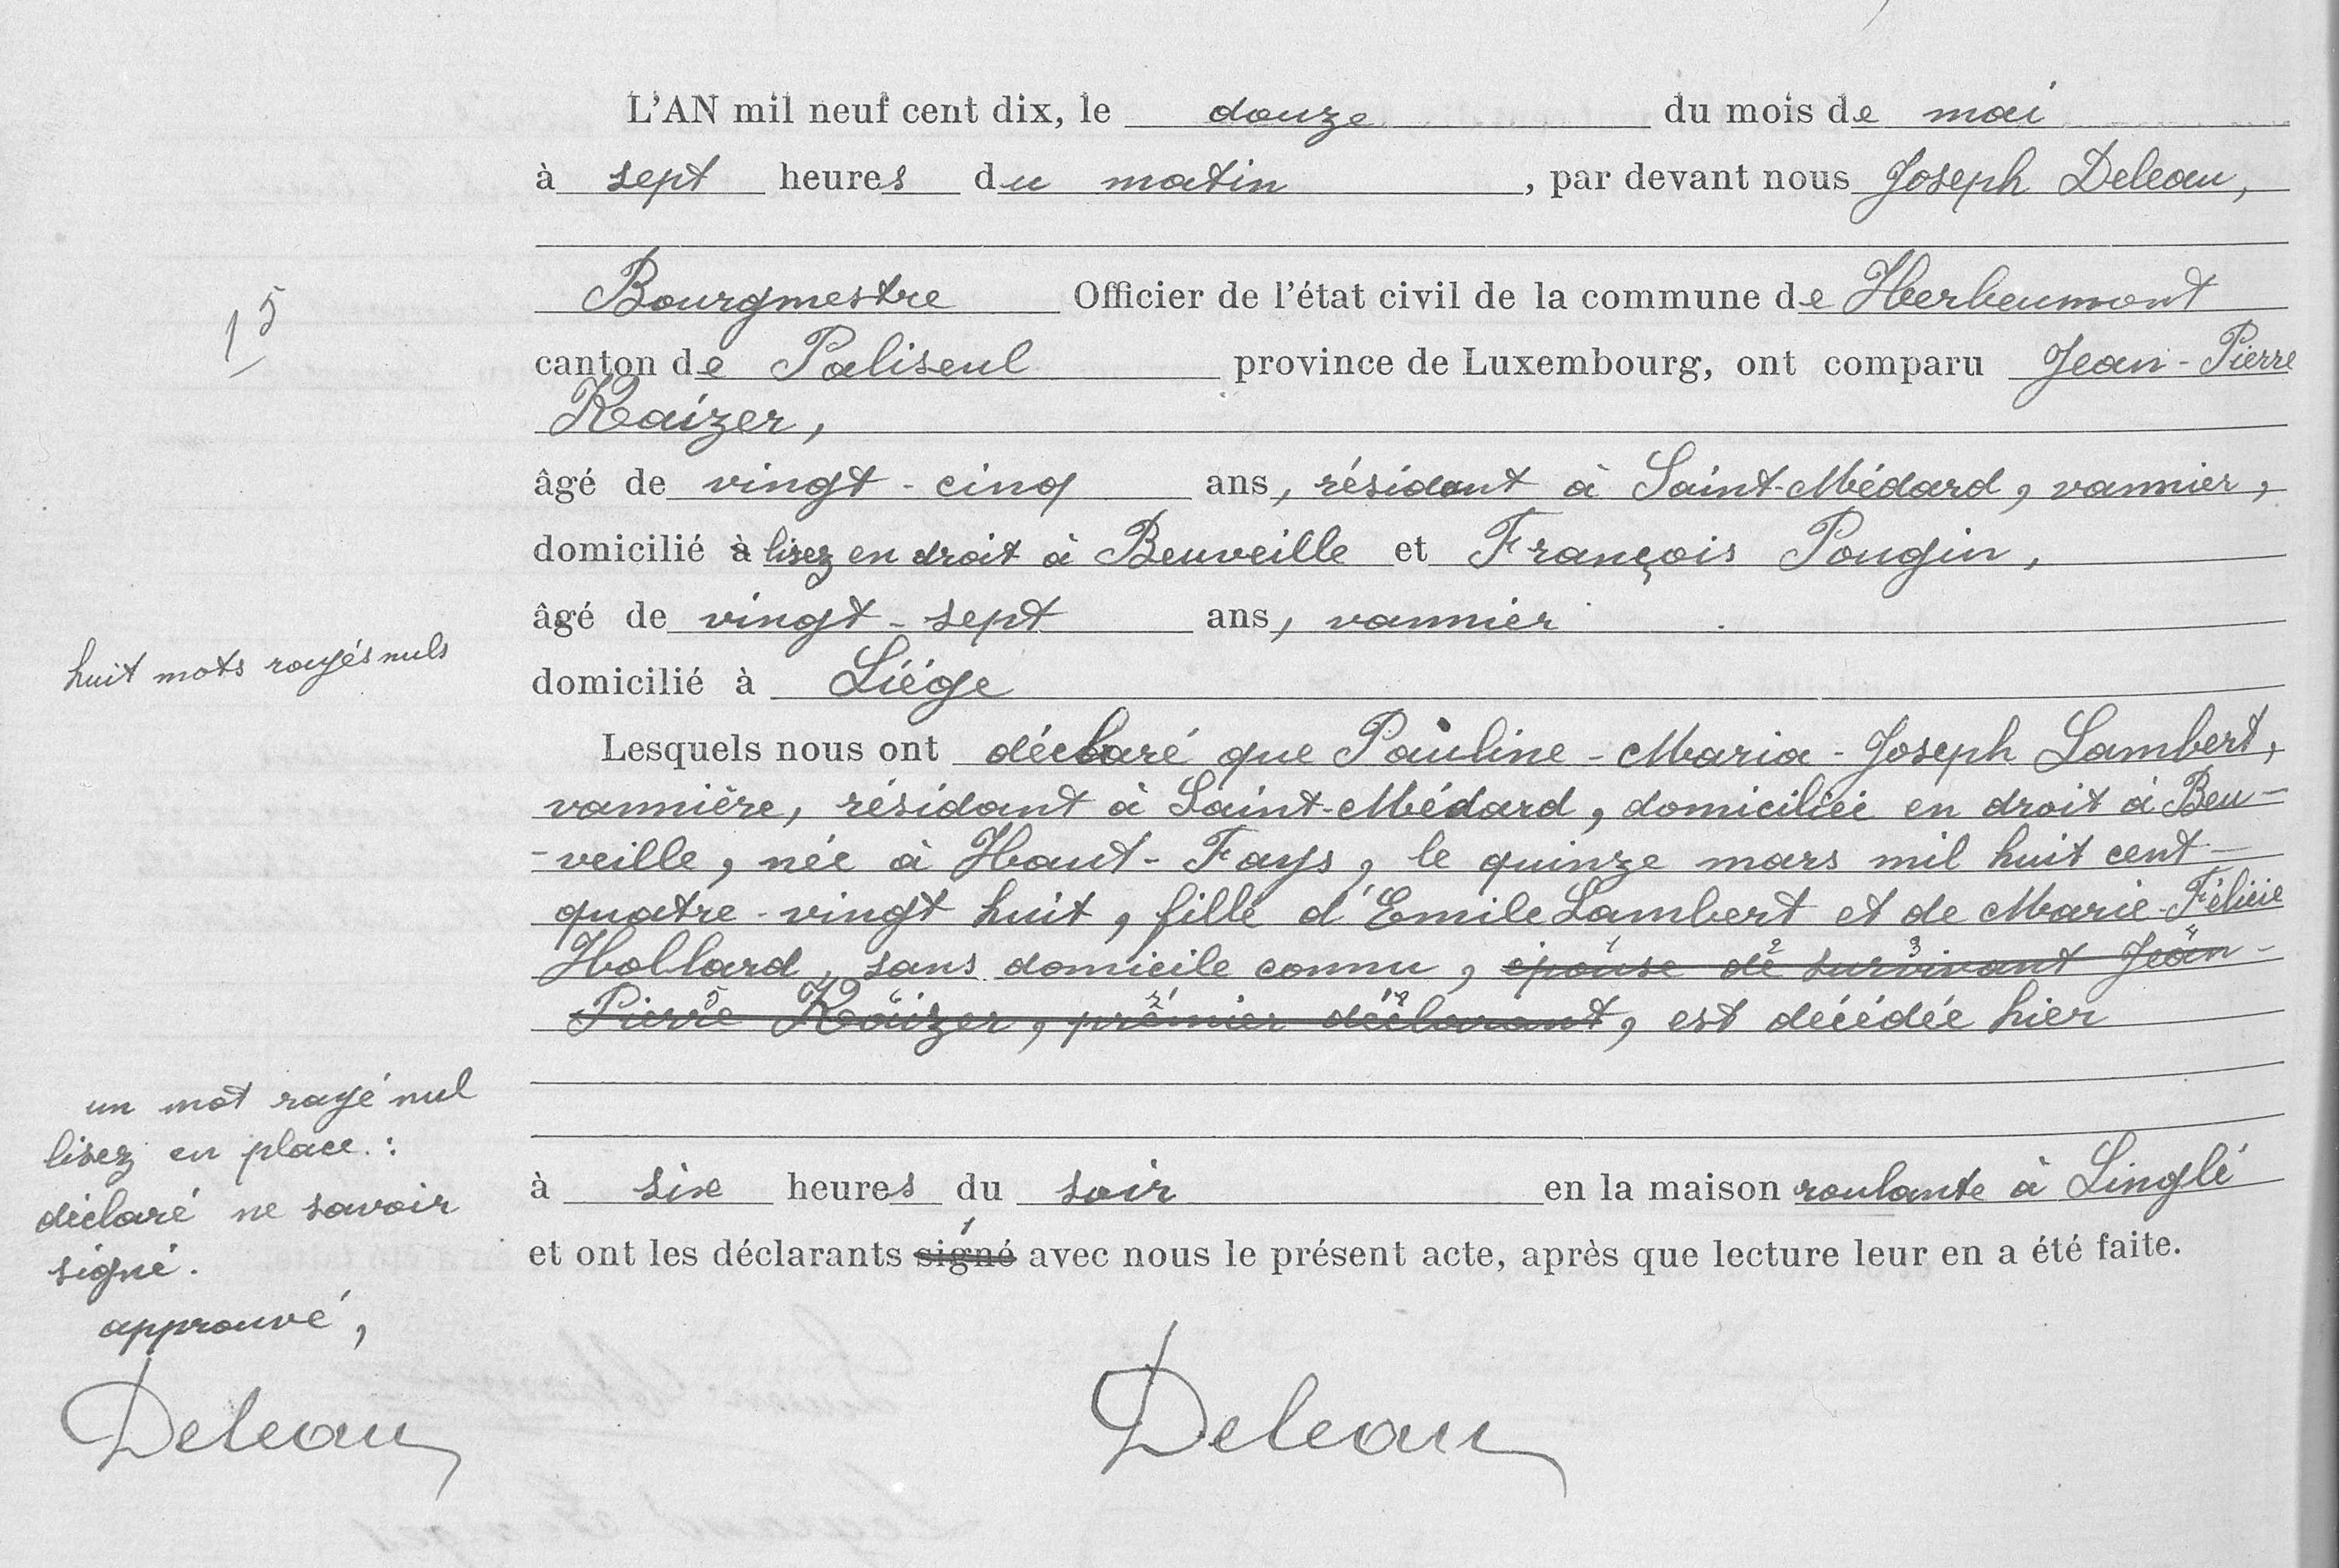 L'AN mil neuf cent dix, le douze du mois de mai
à sept heures du matin, par devant nous Joseph Deleau,
Bourgmestre Officier de l'état civil de la commune de Herbeumont
15
canton de Paliseul province de Luxembourg, ont comparu Jean-Pierre
Kaizer,
âgé de vingt-cinq ans, résidant à Saint-Médard, vannier,
domicilié à lisez en droit à Beuveille et François Pougin,
âgé de vingt-sept ans, vannier
huit mots rayés nuls
domicilié à Liége
Lesquels nous ont déclaré que Pauline-Maria-Joseph Lambert,
vannière, résidant à Saint-Médard, domiciliée en droit à Beu-
-veille, née à Haut-Fays, le quinze mars mil huit cent-
quatre-vingt huit, fille d'Emile Lambert et de Marie-Félicie
Hollard, sans domicile connu, épouse de survivant Jean-
Pierre Kaizer, premier déclarant, est décédée hier
un mot rayé nul
lisez en place :
déclaré ne savoir
signé.
approuvé,
à six heures du soir en la maison roulante à Linglé
et ont les déclarants signé avec nous le présent acte, après que lecture leur en a été faite.
Deleau
Deleau